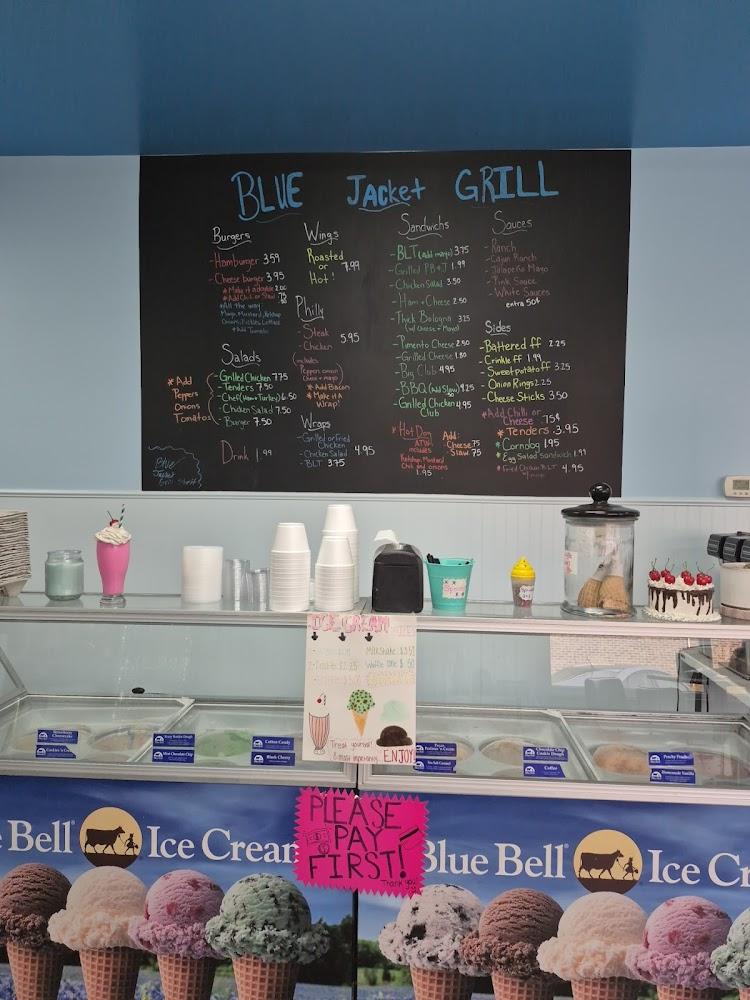 BLUE Jacket GRILL
Burgers
-Hamburger 3.59
-Cheese burger 3.95
*Make it a double 2.00
*Add Chili or Slaw .75
*All the way:
Mayo, Mustard, Ketchup
Onions, Pickles, Lettuce
*Add Tomato
Salads
-Grilled Chicken 7.75
-Tenders 7.50
-Chef (Ham+Turkey) 6.50
-Chicken Salad 7.50
-Burger 7.50
*Add
Peppers
Onions
Tomatos
Drink 1.99
Blue
Jacket
Grill Staff
Wings
Roasted
or
Hot!
7.99
Philly
-Steak
-Chicken
5.95
(includes
Peppers, onions
Cheese + mayo)
*Add Bacon
*Make it a
Wrap!
Wraps
-Grilled or Fried
Chicken
-Chicken Salad
4.95
-BLT 3.75
Sandwichs
-BLT (add mayo) 3.75
-Grilled PB+J 1.99
-Chicken Salad 3.50
-Ham + Cheese 2.50
-Thick Bologna 3.25
(w/ Cheese + Mayo)
-Pimento Cheese 2.50
-Grilled Cheese 1.80
-Big Club 4.95
-BBQ (Add Slaw) 4.95
-Grilled Chicken 4.95
Club
*Hot Dog
ATW
includes
Ketchup, Mustard
Chili and onions
1.95
Add:
Cheese .75
Slaw .75
Sauces
-Ranch
-Cajun Ranch
-Jalapeño Mayo
-Pink Sauce
-White Sauces
extra 50¢
Sides
-Battered ff 2.25
-Crinkle ff 1.99
-Sweet potato ff 3.25
-Onion Rings 2.25
-Cheese Sticks 3.50
*Add Chilli or
Cheese .75¢
*Tenders 3.95
*Corndog 1.95
*Egg Salad Sandwich 1.99
*Fried Green BLT 4.95
ICE CREAM
Milkshake
Waffle Cone
Treat yourself
ENJOY
PLEASE
PAY
FIRST!
Thank you!
Coffee
Peachy Peaches
Homemade Vanilla
Mint Chocolate Chip
Black Cherry
Cookies 'n Cream
Chocolate Chip
Cookie Dough
e Bell Ice Crean
Blue Bell Ice Cr